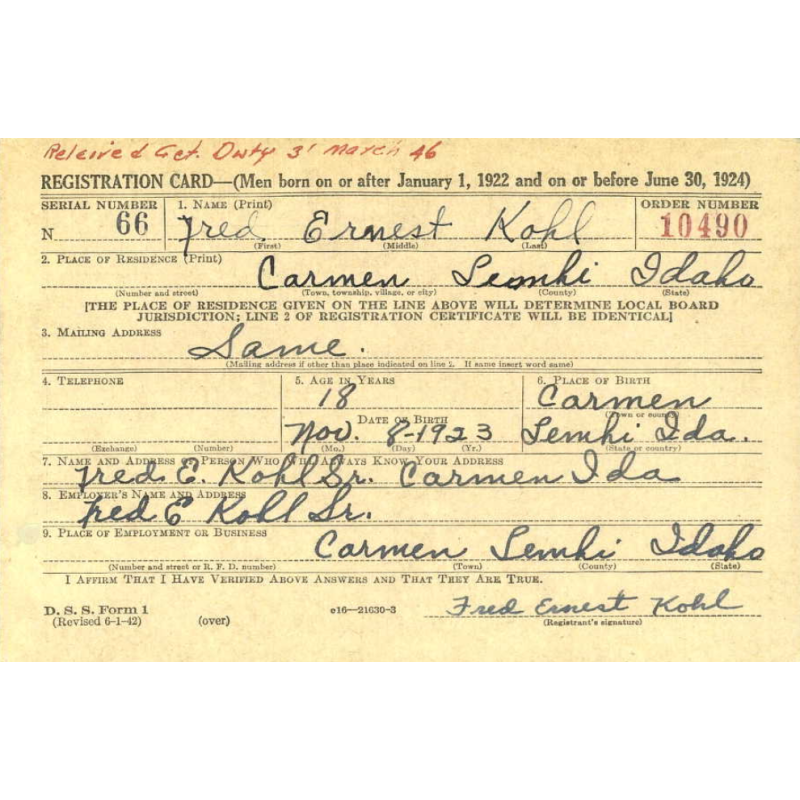 Releived Act. Duty 31 March 46
REGISTRATION CARD—(Men born on or after January 1, 1922 and on or before June 30, 1924)
SERIAL NUMBER 1. NAME (Print) ORDER NUMBER
N 66 Fred Ernest Kohl 10490
(First) (Middle) (Last)
2. PLACE OF RESIDENCE (Print)
Carmen Lemhi Idaho
(Number and street) (Town, township, village, or city) (County) (State)
[THE PLACE OF RESIDENCE GIVEN ON THE LINE ABOVE WILL DETERMINE LOCAL BOARD
JURISDICTION; LINE 2 OF REGISTRATION CERTIFICATE WILL BE IDENTICAL]
3. MAILING ADDRESS
Same.
(Mailing address if other than place indicated on line 2. If same insert word same)
4. TELEPHONE 5. AGE IN YEARS 6. PLACE OF BIRTH
18 Carmen
DATE OF BIRTH (Town or county)
Nov. 8-1923 Lemhi Ida.
(Exchange) (Number) (Mo.) (Day) (Yr.) (State or country)
7. NAME AND ADDRESS OF PERSON WHO WILL ALWAYS KNOW YOUR ADDRESS
Fred E. Kohl Sr. Carmen Ida
8. EMPLOYER'S NAME AND ADDRESS
Fred E Kohl Sr.
9. PLACE OF EMPLOYMENT OR BUSINESS
Carmen Lemhi Idaho
(Number and street or R. F. D. number) (Town) (County) (State)
I AFFIRM THAT I HAVE VERIFIED ABOVE ANSWERS AND THAT THEY ARE TRUE.
D. S. S. Form 1 c16—21630-3 Fred Ernest Kohl
(Revised 6-1-42) (over) (Registrant's signature)